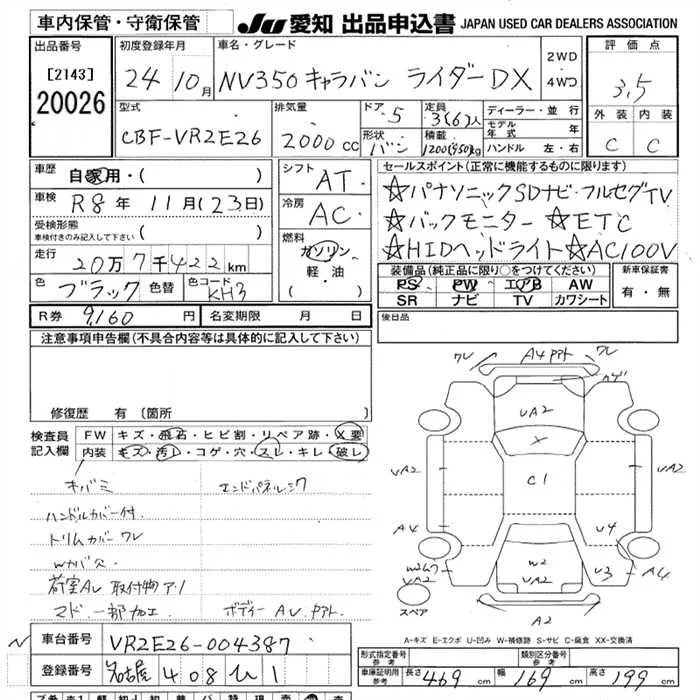 車内保管・守衛保管
JU 愛知 出品申込書 JAPAN USED CAR DEALERS ASSOCIATION
出品番号
[2143]
20026
初度登録年月
24 10月
車名・グレード
NV350 キャラバン ライダーDX
2WD
4WD
評価点
3.5
外装 内装
C C
型式
CBF-VR2E26
排気量
2000 cc
ドア
5
形状
バン
定員
3(6)人
積載
1200(950)kg
ディーラー・並行
モデル年式 年
ハンドル 左・右
車歴 自家用・( )
車検 R8年 11月(23日)
受検形態
車検付きのみ記入して下さい ( )
走行
20万7千422km
色
ブラック
色替
色コード
KH3
シフト
AT
冷房
AC
燃料
ガソリン・
軽・油
・( )
セールスポイント(正常に機能するものに限ります)
☆パナソニックSDナビ・フルセグTV
☆バックモニター ☆ETC
☆HIDヘッドライト ☆AC100V
装備品(純正品に限り○をつけてください)
PS PW エアB AW
SR ナビ TV カワシート
新車保証書
有・無
R券 9,160円
名変期限 月 日
後日品
注意事項申告欄(不具合内容等は具体的に記入して下さい)
修復歴 有 〔箇所
検査員
記入欄
FW キズ・飛石・ヒビ割・リペア跡・X要
内装 キズ・汚レ・コゲ・穴・スレ・キレ・破レ
キバミ エンドパネルシワ
ハンドルカバー付.
トリムカバーワレ
Wカバ欠.
荷室AV 取付物アリ
マド一部加工 ボディーAV.アト
ワレ A4アト ワレ
カゲ
UA2
X
UA2 C1 UA2
A4 U4
W2
UA2 UA2 U3 A4
A2
スペア
A-キズ E-エクボ U-凹み W-補修跡 S-サビ C-腐食 XX-交換済
車台番号 VR2E26-004387
登録番号 名古屋 408 ひ 1
形式指定番号
参考
類別区分番号
参考
車庫証明用
参考
長さ 469cm 幅 169cm 高さ 199cm